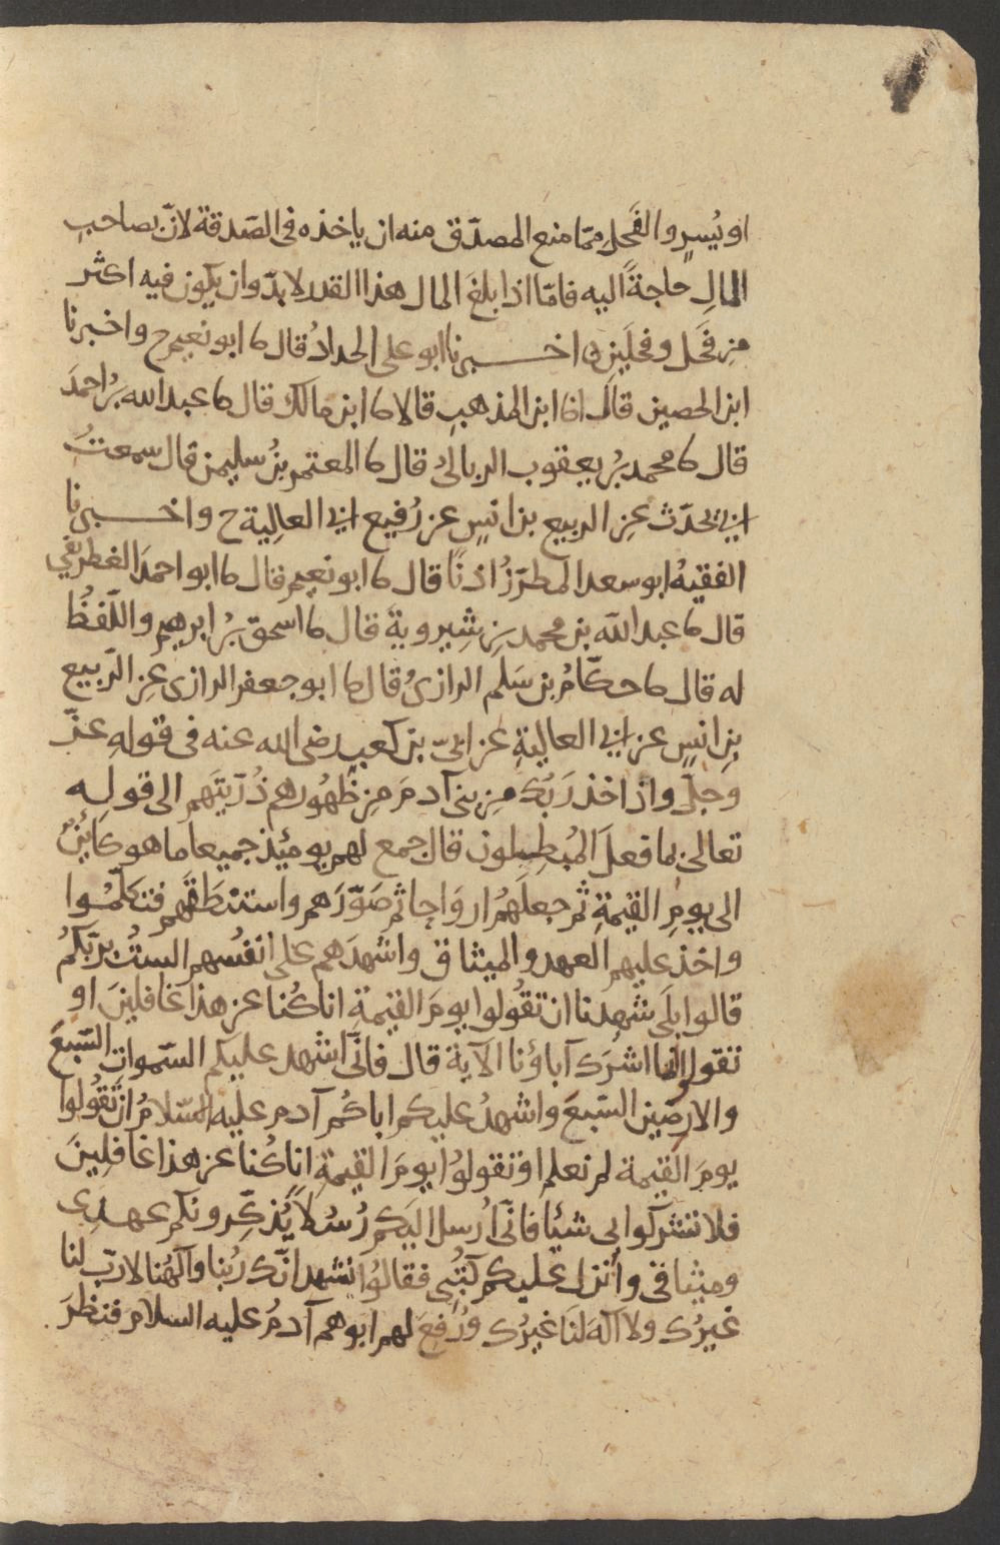 او يُسرٍ والفَحلِ ممّا منع المصدّق منه ان ياخذه فى الصَدقة لانّ بصاحبِ
المالِ حاجةً اليه فامّا اذا بلغَ المال هذا القدر لا بدّ وان يكون فيه اكثر
مِن فَحَل وفحلَين ٥ اخــبرنا ابو على الحدادُ قال ثا ابو نعيم ح واخبرنا
ابن الحصين قالَ انا ابن المذهبِ قالا ثا ابن مالك قال ثا عبد الله بنُ احمدَ
قال ثا محمد بنُ يعقوب الربالىُ قال ثا المعتمر بنُ سليمن قال سمعتُ
ابى يحدّث عنِ الربيع بن انسٍ عن رُفيع ابى العالِية ح واخــبرنا
الفقيهُ ابو سعد المطرّزُ اذنًا قال ثا ابو نعيم قال ثا ابو احمدَ الغطريفي
قال ثا عبد اللّه بن محمد بنِ شِيروية قال ثا اسحق بنُ ابرهيم واللّفظُ
له قال ثا حكّامُ بن سَلم الرازىُ قال ثا ابو جعفر الرازى عنِ الرّبيع
بنِ انسٍ عن ابى العاليةِ عن ابىّ بن كعبٍ رضى الله عنه فى قولهِ عزّ
وجلّ واذ اخذ رَبُك مِن بنى آدمَ مِن ظهُورهم ذُرّيتَهم الى قولـه
تعالى بما فعلَ المُبطِلون قال جمع لهم يومئذ جميعا ما هو كايُنٌ
الى يومِ القيمةِ ثم جعلَهُم ارواجا ثم صَوّرَهم واستنطَقَهم فتكلّمُوا
واخذ عليهم العهد والميثاق واشهدَهم على انفسُهم الستُ بربّكمُ
قالوا بلَى شهدنا ان تقُولوا يومَ القيمةِ انا كُنا عن هذا غافلينَ او
تقولوا انما اشرَك آباؤنا الآية قال فانّى اشهد عليكم السّموات السّبعَ
والارضين السّبعَ واشهدُ عليكم اباكُم آدم عليه السّلامُ ان تقُولوا
يومَ القيمة لم نعلم او تقولوُا يومَ القيمةِ انا كُنا عن هذا غافلِينَ
فلا تشركوا بى شيئا فانّى اُرسل اليكم رُسُلاً يُذكِّرونكم عهدِى
وميثاقى واُنزل عليكم كُتُبى فقالوُا نشهد انّك ربُنا وآلهُنا لا ربّ لنا
غيرُك ولا آلهَ لنَا غيرُك ورُفعَ لهم ابوهم آدمُ عليه السلام فنظرَ